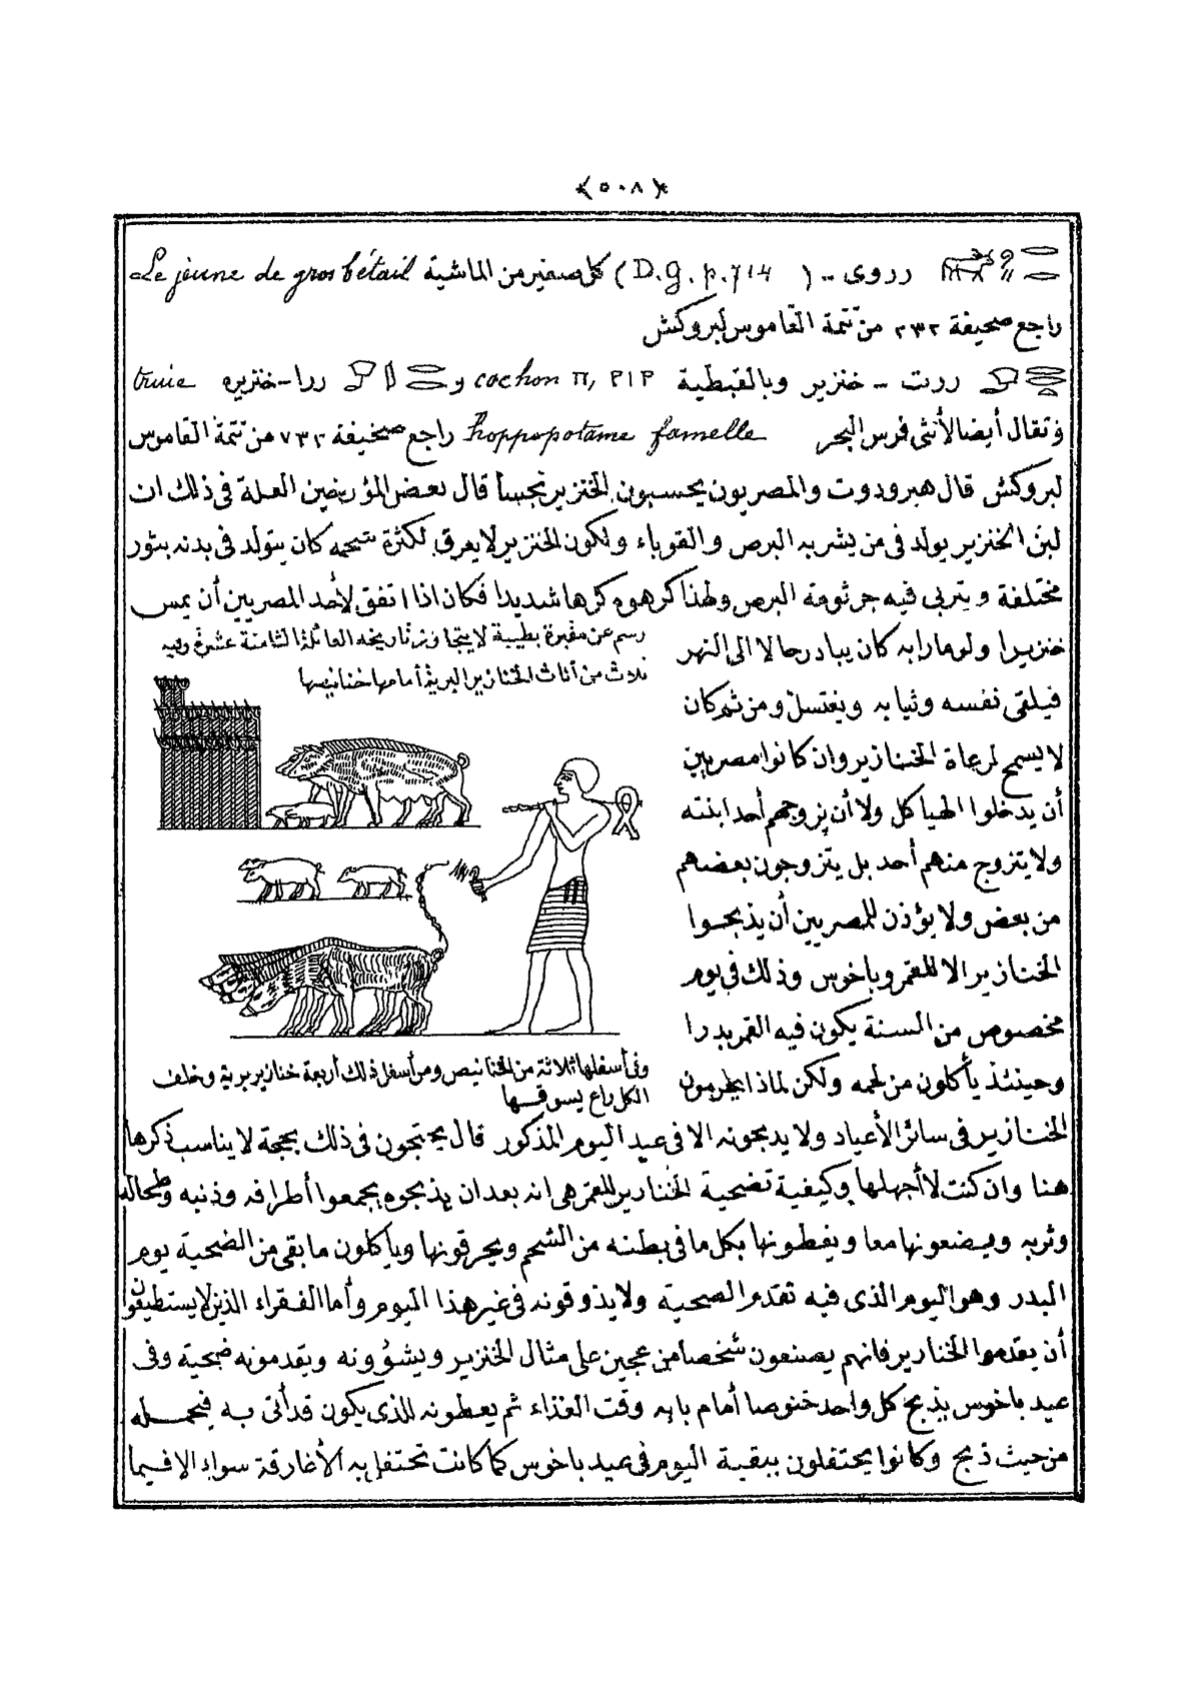 ﴿٥٠٨﴾
رروى -- ( D.g. p. 714 ) كل صغير من الماشية Le jeune de gros bétail
راجع صحيفة ٧٣٢ من تتمة القاموس لبروكش
ررت - خنزير وبالقبطية cochon π, ριρ و ررا - خنزيره truie
وتقال أيضا لأنثى فرس البحر hoppopotame famelle راجع صحيفة ٧٣٢ من تتمة القاموس
لبروكش قال هيرودوت والمصريون يحسبون الخنزير نجسا قال بعض المؤرخين العلة فى ذلك ان
لبن الخنزير يولد فى من يشربه البرص والقوباء ولكون الخنزير لا يعرق لكثرة شحمه كان يتولد فى بدنه بثور
مختلفة ويتربى فيه جرثومة البرص ولهذا كرهوه كرها شديدا فكان اذا اتفق لأحد المصريين أن يمس
خنزيرا ولو مارا به كان يبادر حالا الى النهر
فيلقى نفسه وثيابه ويغتسل ومن ثم كان
لا يسمح لرعاة الخنازير وان كانوا مصريين
أن يدخلوا الهياكل ولا أن يزوجهم أحد ابنته
ولا يتزوج منهم أحد بل يتزوجون بعضهم
من بعض ولا يؤذن للمصريين أن يذبحوا
الخنازير الا للقمر وباخوس وذلك فى يوم
مخصوص من السنة يكون فيه القمر بدرا
وحينئذ يأكلون من لحمه ولكن لماذا يحرمون
رسم عن مقبرة بطيبة لا يتجاوز تاريخه العائلة الثامنة عشرة وفيه
ثلاث من أناث الخنازير البرية أمامها خنانيصها
وفى أسفلها ثلاثة من الخنانيص ومن أسفل ذلك أربعة خنازير برية وخلف
الكل راع يسوقها
الخنازير فى سائر الأعياد ولا يذبحونه الا فى عيد اليوم المذكور قال يحتجون فى ذلك بحجة لا يناسب ذكرها
هنا وان كنت لا أجهلها وكيفية تضحية الخنازير للقمر هى انه بعد ان يذبحوه يجمعوا أطرافه وذنبه وطحاله
وثربه ويضعونها معا ويغطونها بكل ما فى بطنه من الشحم ويحرقونها ويأكلون ما بقى من الضحية يوم
البدر وهو اليوم الذى فيه تقدم الضحية ولا يذوقونه فى غير هذا اليوم وأما الفقراء الذين لا يستطيعون
أن يقدموا الخنازير فانهم يصنعون شخصا من عجين على مثال الخنزير ويشوونه ويقدمونه ضحية وفى
عيد باخوس يذبح كل واحد خنوصا أمام بابه وقت الغذاء ثم يعطونه للذى يكون قد أتى به فيحمله
من حيث ذبح وكانوا يحتفلون ببقية اليوم فى عيد باخوس كما كانت تحتفل به الأغارقة سواء الا فيما